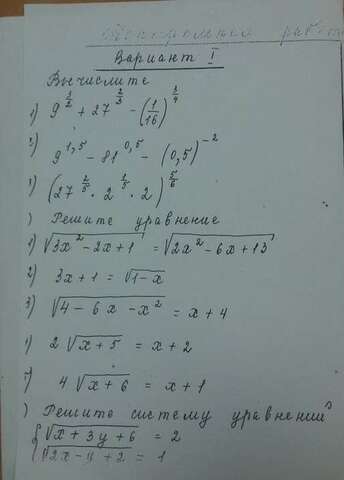 Контрольная работа
Вариант I
Вычислите
1) 9^{3/2} + 27^{2/3} - (1/16)^{3/4}
2) 9^{1,5} - 81^{0,5} - (0,5)^{-2}
3) (27^{2/5} · 2^{1/5} · 2)^{5/6}
) Решите уравнение
1) √(3x² - 2x + 1) = √(2x² - 6x + 13)
2) 3x + 1 = √(1 - x)
3) √(4 - 6x - x²) = x + 4
) 2√(x + 5) = x + 2
) 4√(x + 6) = x + 1
) Решите систему уравнений
{ √(x + 3y + 6) = 2
√(2x - y + 2) = 1